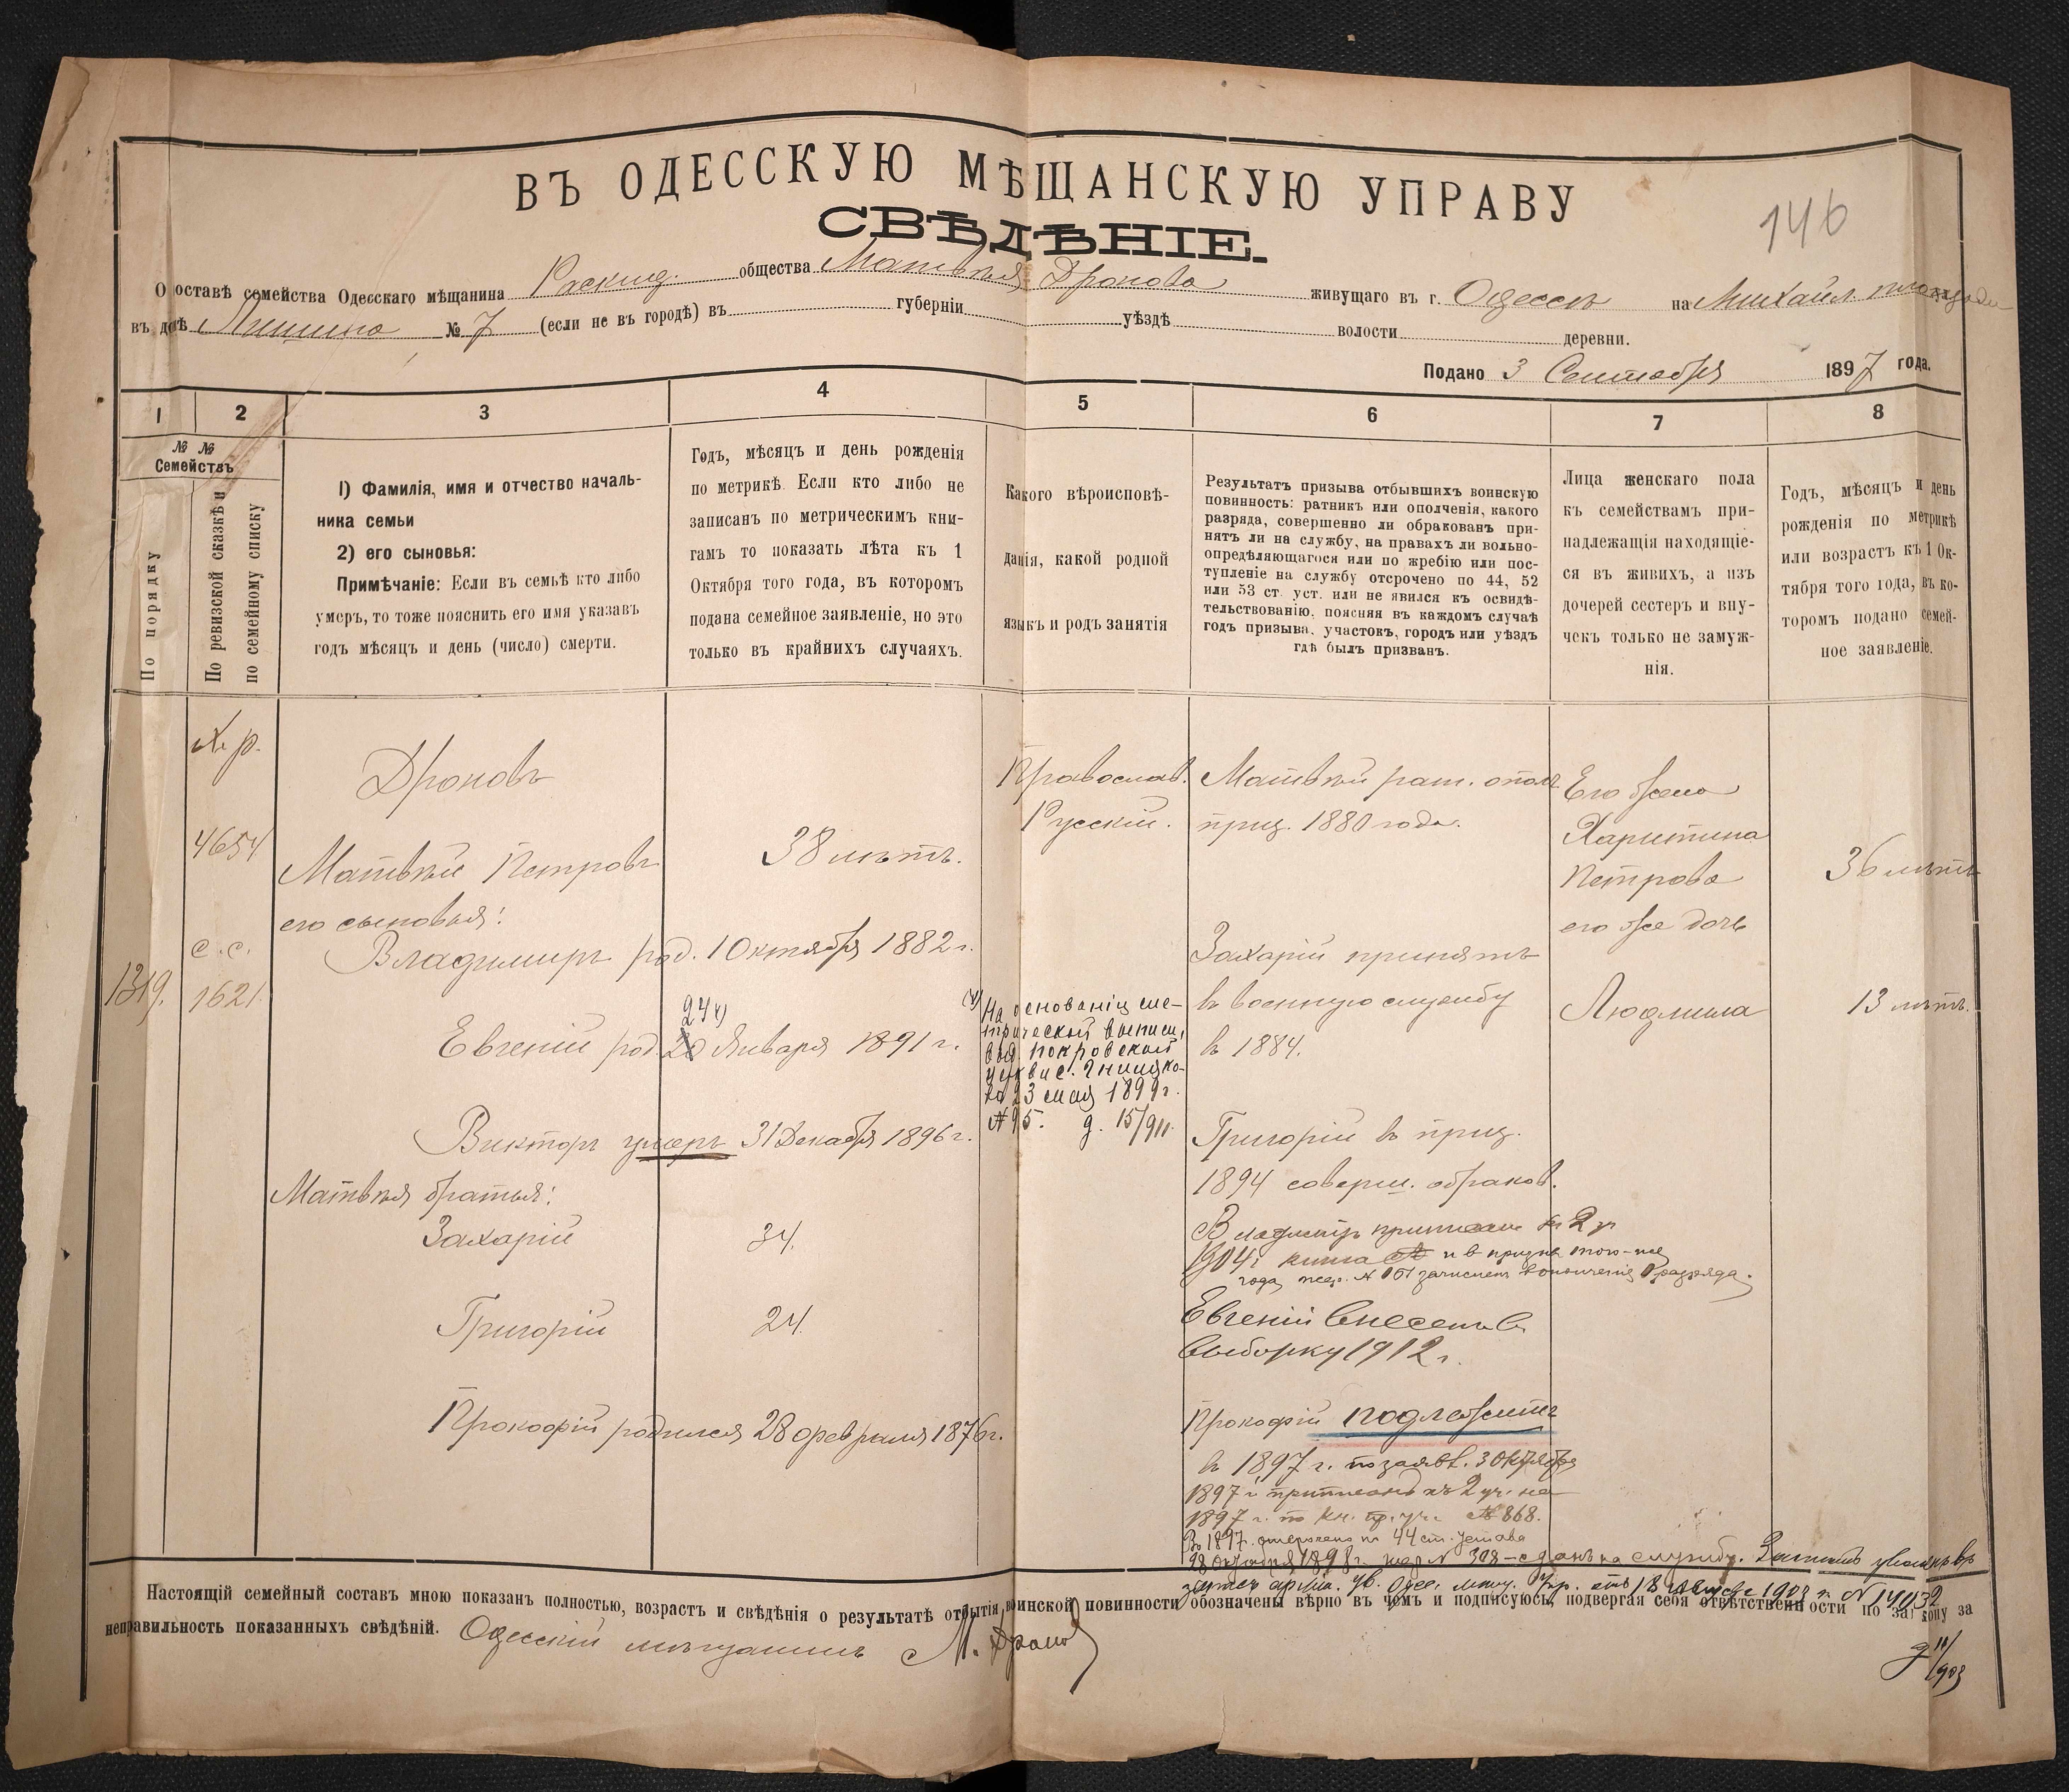 ВЪ ОДЕССКУЮ МѢЩАНСКУЮ УПРАВУ
СВѢДѢНІЕ.
146
О составѣ семейства Одесскаго мѣщанина общества Матвѣя Дронова живущаго въ г. Одессѣ на Михайл. площади
въ домѣ № 7 (если не въ городѣ) въ губерніи уѣздѣ волости деревни.
Подано 3 Сентября 1897 года.
1 2 3 4 5 6 7 8
№ №
Семействъ
По порядку
По ревизской сказкѣ и
по семейному списку
1) Фамилія, имя и отчество началь-
ника семьи
2) его сыновья:
Примѣчаніе: Если въ семьѣ кто либо
умеръ, то тоже пояснить его имя указавъ
годъ мѣсяцъ и день (число) смерти.
Годъ, мѣсяцъ и день рожденія
по метрикѣ Если кто либо не
записанъ по метрическимъ кни-
гамъ то показать лѣта къ 1
Октября того года, въ которомъ
подана семейное заявленіе, но это
только въ крайнихъ случаяхъ.
Какого вѣроисповѣ-
данія, какой родной
языкъ и родъ занятія
Результатъ призыва отбывшихъ воинскую
повинность: ратникъ или ополченія, какого
разряда, совершенно ли обракованъ при-
нятъ ли на службу, на правахъ ли вольно-
опредѣляющагося или по жребію или пос-
тупленіе на службу отсрочено по 44, 52
или 53 ст. уст. или не явился къ освидѣ-
тельствованію, поясняя въ каждомъ случаѣ
годъ призыва, участокъ, городъ или уѣздъ
гдѣ былъ призванъ.
Лица женскаго пола
къ семействамъ при-
надлежащія находящіе-
ся въ живихъ, а изъ
дочерей сестеръ и вну-
чекъ только не замуж-
нія.
Годъ, мѣсяцъ и день
рожденія по метрикѣ
или возрастъ къ 1 Ок-
тября того года, въ ко-
торомъ подано семей-
ное заявленіе.
1319.
Х. р.
4654
с. с.
1621.
Дроновъ
Матвѣй Петровъ 38 лѣтъ.
его сыновья:
Владимиръ род. 1 Октября 1882 г.
24
Евгеній род. 20 Января 1891 г.
Викторъ умеръ 31 Декабря 1896 г.
Матвѣя братья:
Захарій 34.
Григорій 24.
Прокофій родился 28 февраля 1876 г.
Православ.
Русскій.
На основаніи ме-
трической выписи,
выд. Покровской
церкви с.
23 мая 1899 г.
№ 95. 15/911.
Матвѣй рат. ополч.
приз. 1880 года.
Захарій принятъ
въ военную службу
въ 1884.
Григорій въ приз.
1894 соверш. обраков.
Владиміръ приписанъ къ 2 уч
1904 г. и въ призывѣ того-же
года жер. № зачисленъ въ ополченіе разряда.
Евгеній внесенъ въ
выборку 1912 г.
Прокофій подлежитъ
въ 1897 г. по заявл. 3 Октября
1897 г. приписанъ къ 2 уч. на
1897 г. по кн. пр. уч. № 868.
Въ 1897 отсрочено по 44 ст. Устава
28 Октября 1898 г. жер № 308 – сданъ на службу. уволенъ въ
запасъ арміи. ув. Одес. Упр. отъ 18 1903 г. № 14032
Его жена
Харитина
Петрова 36 лѣтъ
его же дочь
Людмила 13 лѣтъ.
Настоящій семейный составъ мною показанъ полностью, возрастъ и свѣдѣнія о результатѣ отбытія воинской повинности обозначены вѣрно въ чемъ и подписуюсь, подвергая себя отвѣтственности по закону за
неправильность показанныхъ свѣдѣній. Одесскій мѣщанинъ М. Дроновъ